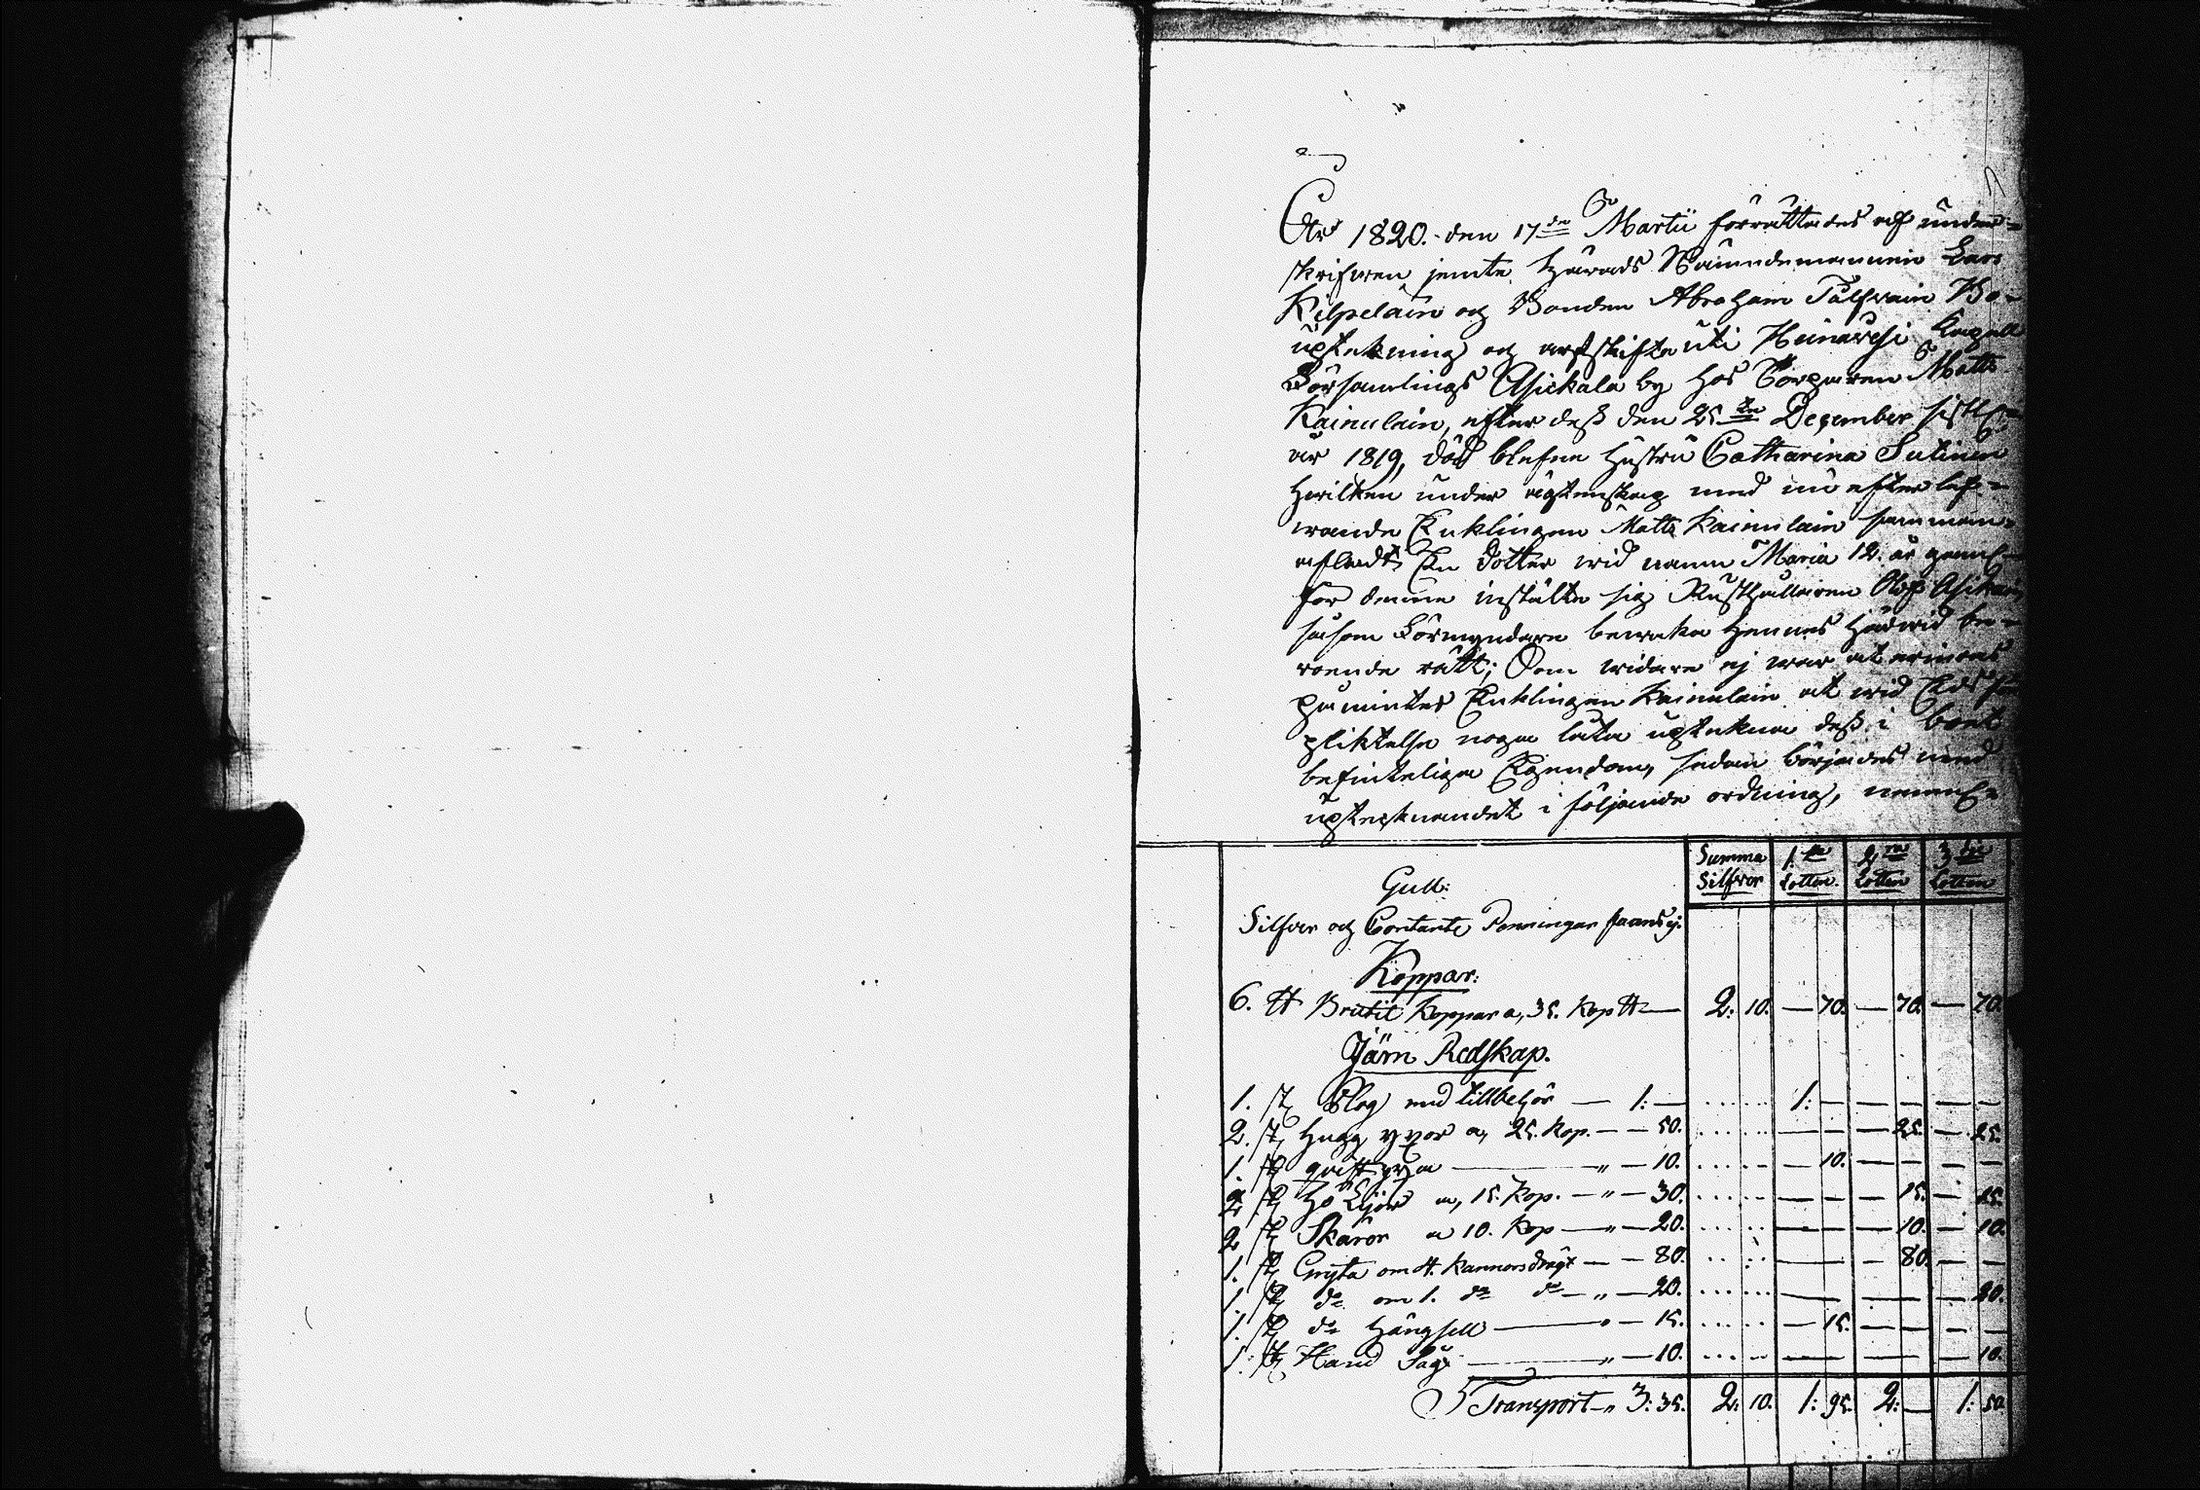 År 1820. den 17de Martii förrättades af under-
skrifven jemte Härads Nämndemannen Lars
Kilpeläin och Bonden Abraham Bo-
uptekning och arfskifte uti Heinävesi Kapell
Församlings Asickala by hos Torparen Matts
Kainulain, efter dess den 25te December sistl
år 1819, död blefne hustru Catharina Sutinen
hvilken under ägtenskap med nu efterlef-
wande Enklingen Matts Kainulain samman
afladt En dotter vid namn Maria 12. år gammal
för denne instälte sig Rusthållaren Olof Asikain
såsom Förmyndare bevaka hennes härvid be-
roende rätt; Som widare ej war at erinras
påmintes Enklingen Kainulain at wid Eds för
pliktelse noga låta uptekna dess i boet
befinteliga Egendom, sedan börjades med
uptecknandet i följande ordning, nemligen
Summa Silfver 1sta Lotten. 2ra Lotten 3die Lotten
Gull:
Silfver och Contante Penningar fanns ej.
Koppar:
6. ℔ Brukit Koppar a, 35. Kop ℔ — 2: 10. — 70. — 70. — 70.
Järn Redskap.
1. st Plog med tillbehör — 1: — ..... 1: — — — — —
2. st, Hugg yxor a, 25. Kop. — — 50. ..... — — — 25. — 25.
1. st yxa — " — 10. ..... — 10. — — — —
2. st Hö Lijor a, 15. Kop. — " — 30. ..... — — — 15. — 15.
2 st Skäror a 10. Kop — " — 20. ..... — — — 10. — 10.
1. st Gryta om 4. kannors drägt — — 80. ..... — — 80. — —
1. st do om 1. do do — " — 20. ..... — — — 20.
1. st do Hängsell — " — 15. ..... — 15. — — — —
1. st Hand Såg — " — 10. ..... — — — 10.
Transport — " 3: 35. 2: 10. 1: 95. 2: — 1: 50.